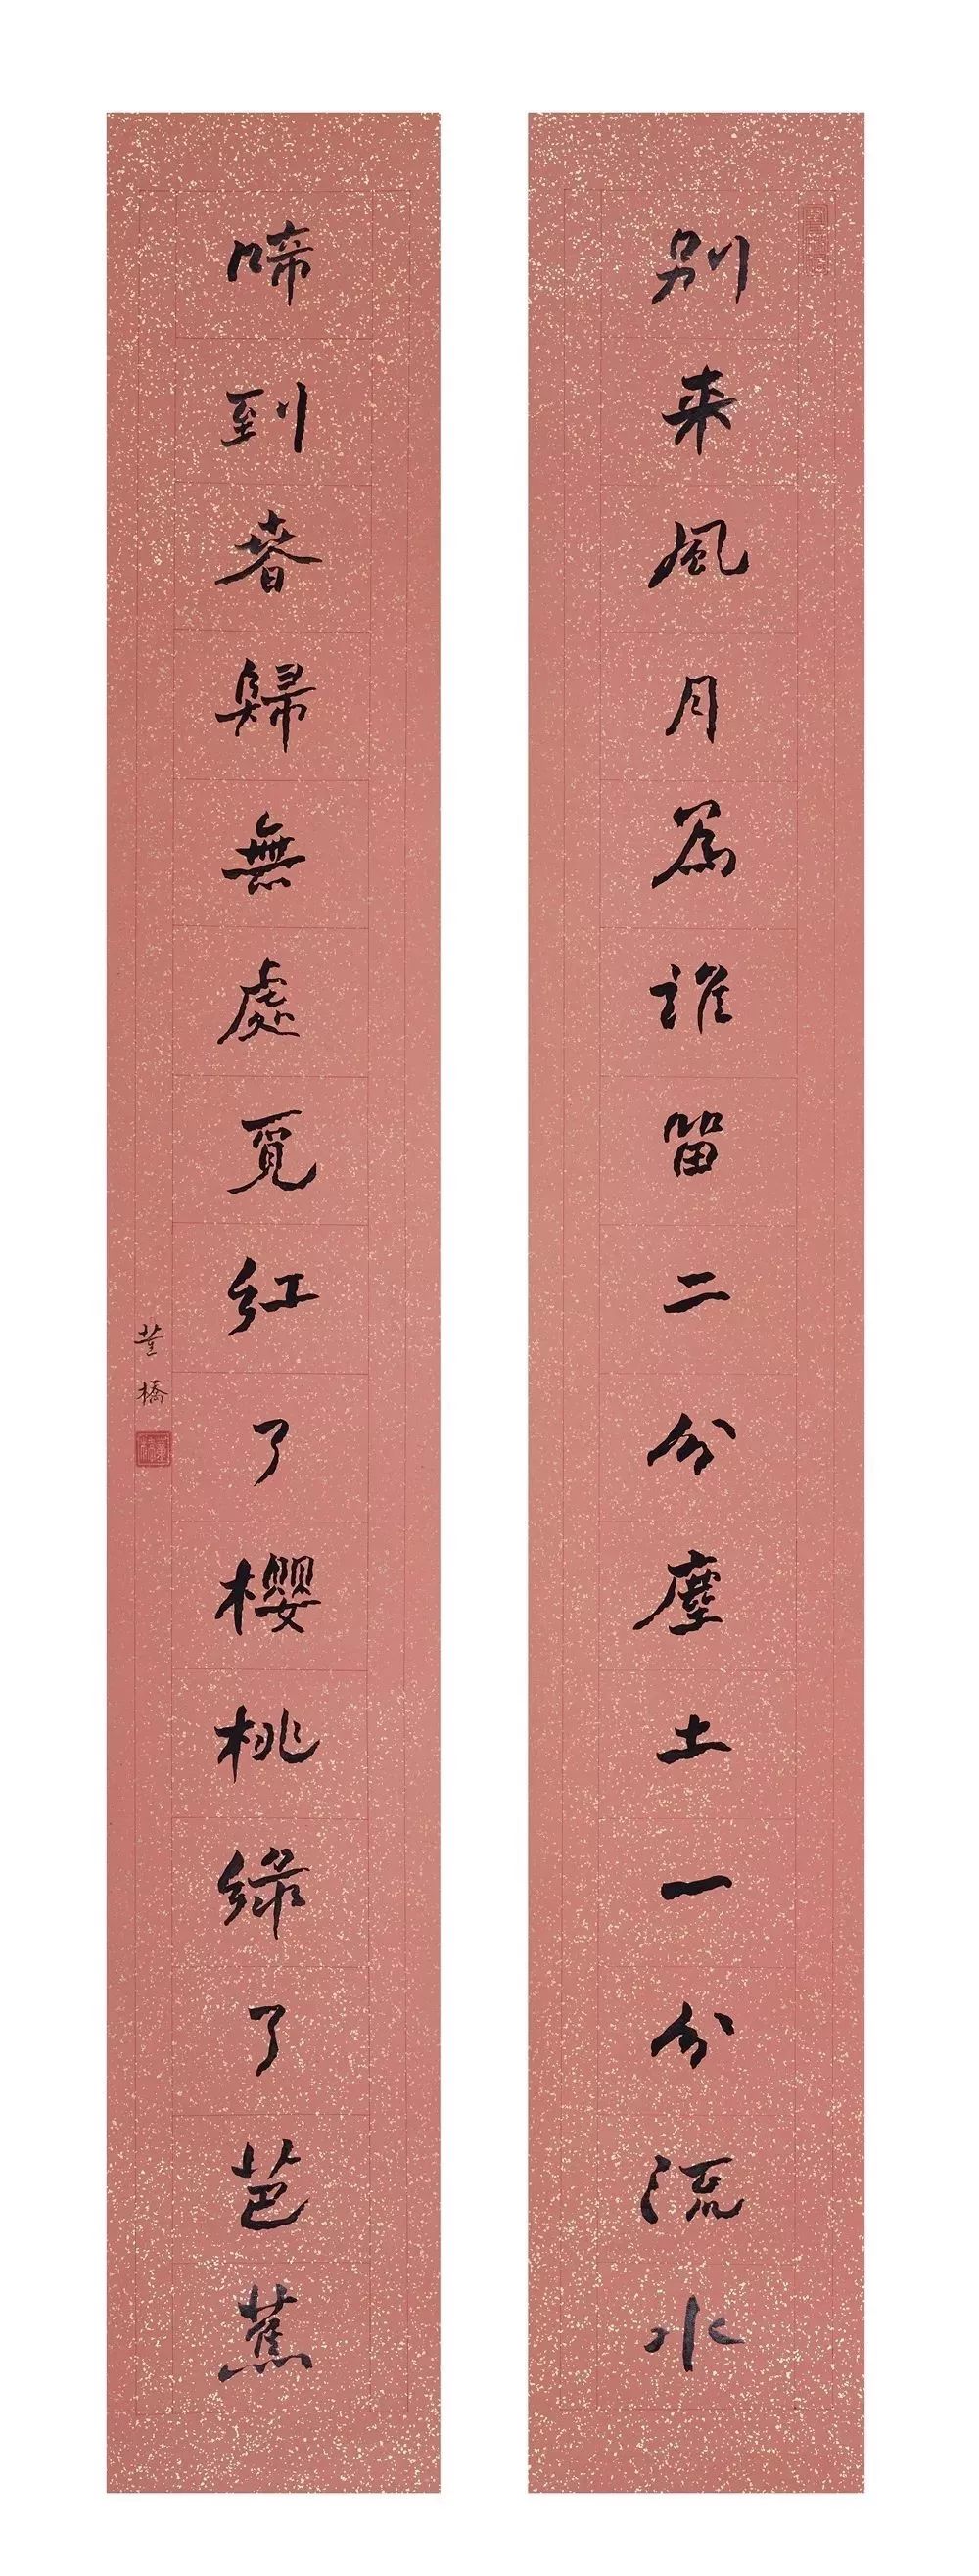 別来風月為誰留二分塵土一分流水
啼到春歸無處覓紅了櫻桃綠了芭蕉
董橋